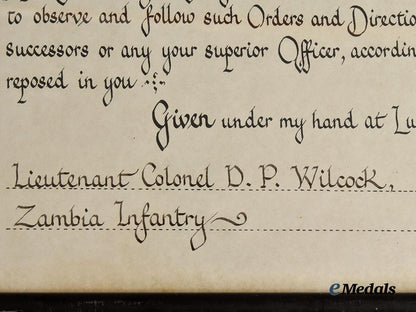 to observe and follow such Orders and Directio
successors or any your superior Officer, accordin
reposed in you
Given under my hand at Lu
Lieutenant Colonel D. P. Wilcock,
Zambia Infantry
eMedals